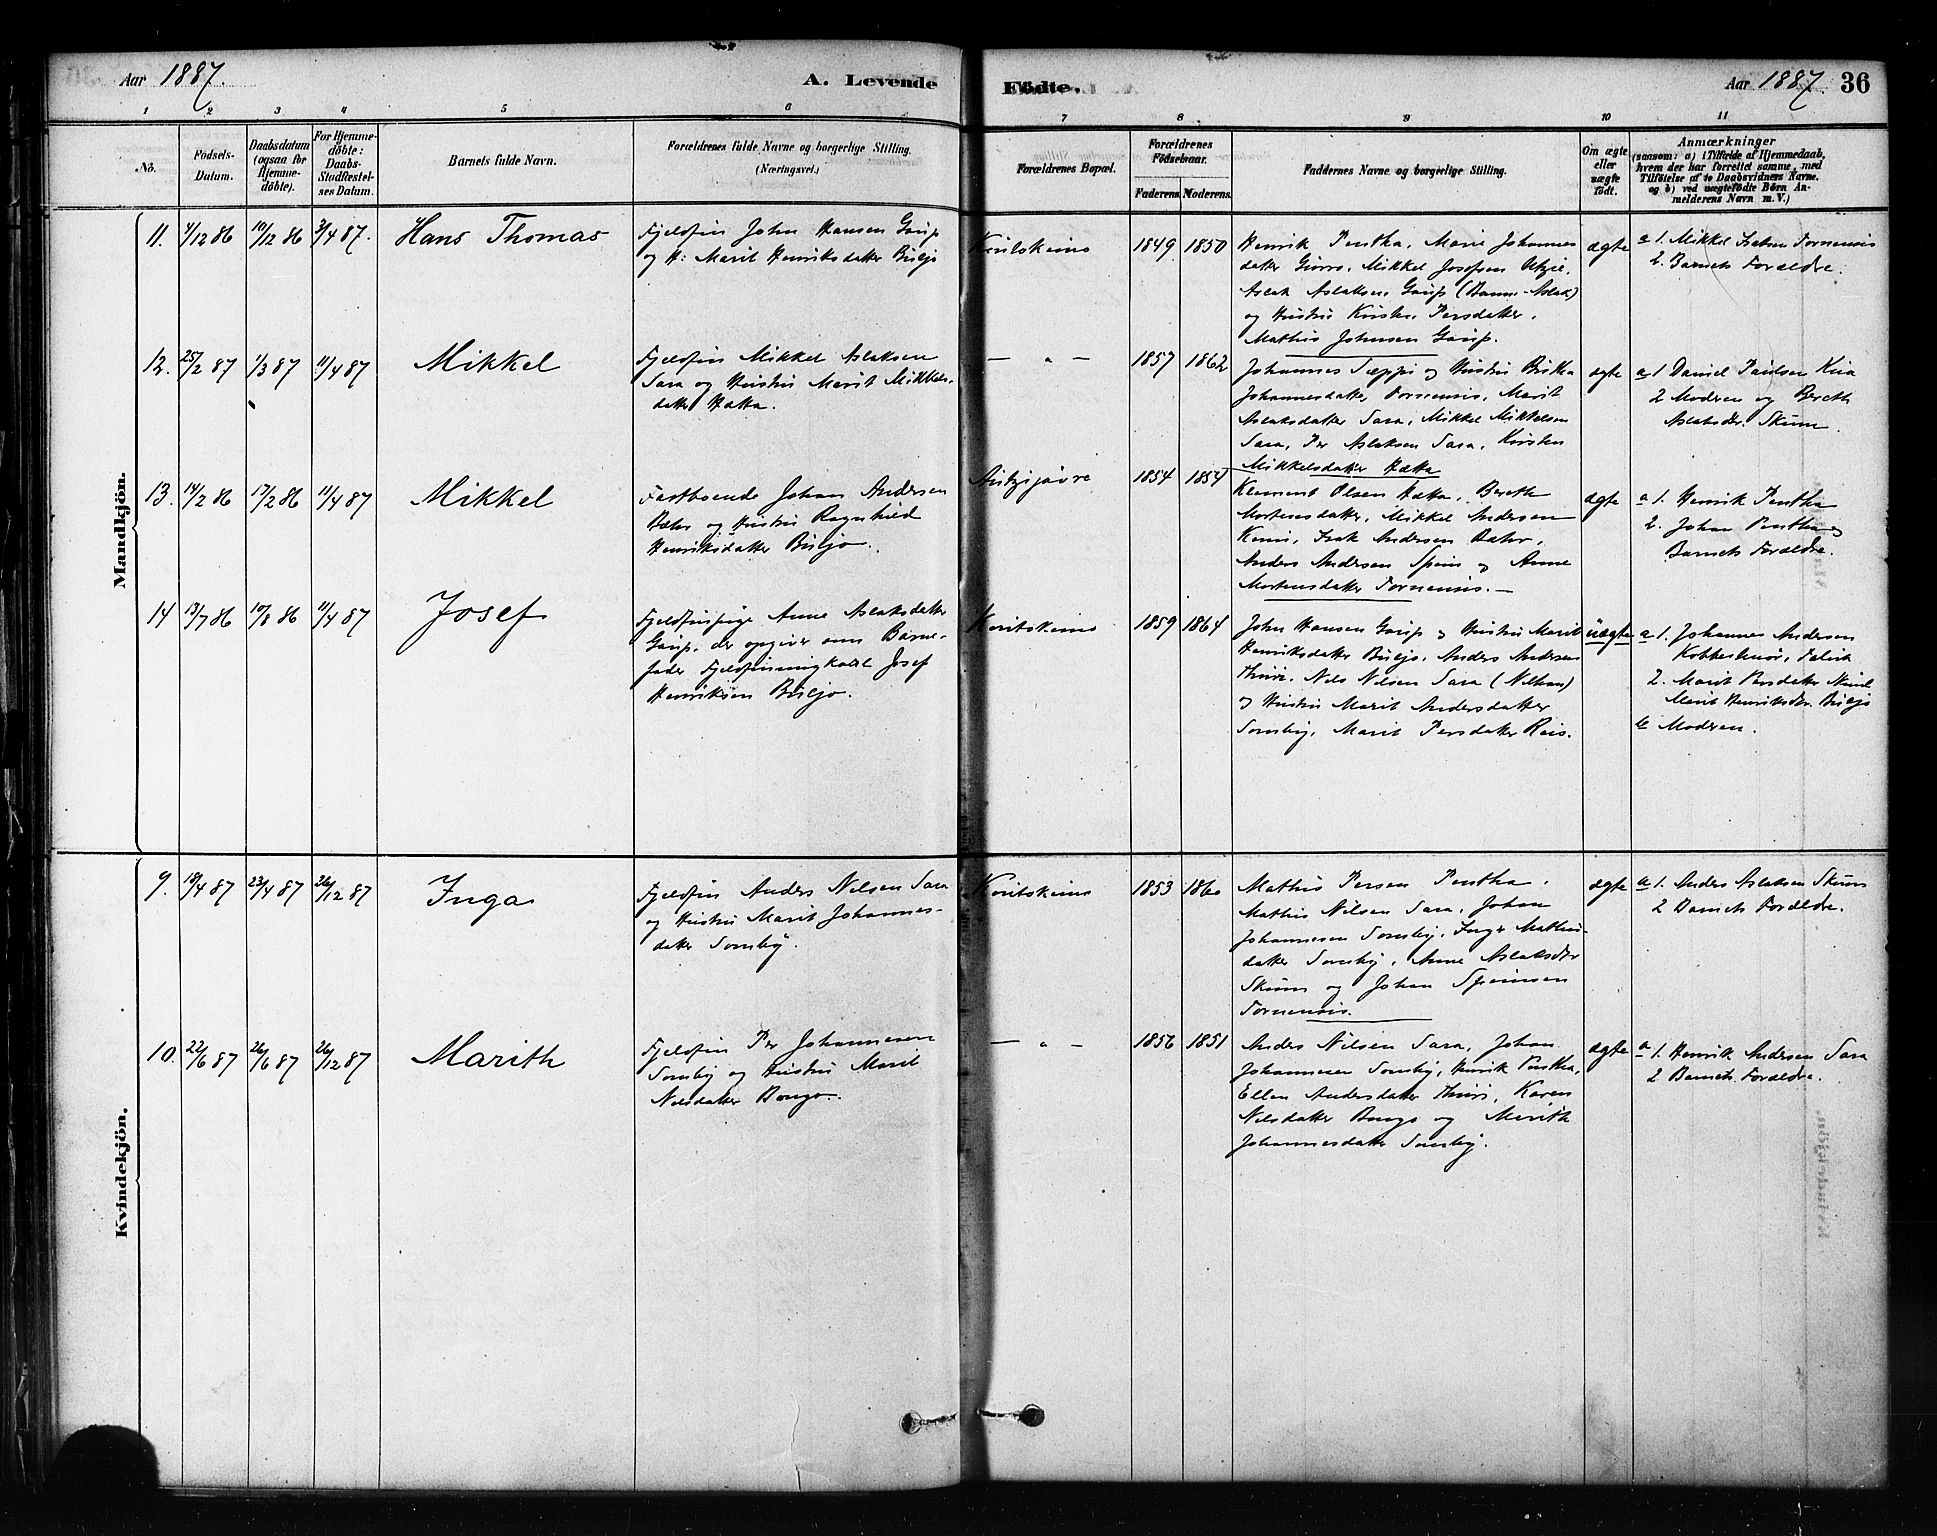 Aar 1887.
A. Levende
Födte.
Aar 1887.
36
1 2 3 4 5 6 7 8 9 10 11
No.
Födsels-
Datum.
Daabsdatum
(ogsaa for
Hjemme-
döbte).
For Hjemme-
döbte:
Daabs-
Stadfæstel-
sens Datum.
Barnets fulde Navn.
Forældrenes fulde Navne og borgerlige Stilling.
(Næringsvei.)
Forældrenes Bopæl.
Forældrenes
Födselsaar.
Faderens. Moderens.
Faddernes Navne og borgerlige Stilling.
Om ægte
eller
uægte
födt.
Anmærkninger
(saasom: a) i Tilfælde af Hjemmedaab,
hvem der har forrettet samme, med
Tilföielse af to Daabsvidners Navne.
og b) ved uægtefödte Börn An-
melderens Navn m. V.)
Mandkjön.
11. 4/12 86 10/12 86 3/4 87. Hans Thomas
Fjeldfin John Hansen Gaup
og H: Marit Henriksdatter Buljo
1849 1850
Henrik Pentha, Marie Johannes
datter Mikkel Josefsen Utzie,
Aslak Aslaksen Gaup (Banne-Aslak)
og Hustru Kirsten Persdatter.
Mathis Johnsen Gaup.
ægte
a 1. Mikkel Tornensis
2. Barnets Forældre.
12. 25/2 87 1/3 87 11/4 87 Mikkel
Fjeldfin Mikkel Aslaksen
Sara og Hustru Marit Mikkels-
datter Hætta.
— " —
1857 1862
Johannes Sæppi og Hustru Britha
Johannesdatter Tornensis, Marit
Aslaksdatter Sara, Mikkel Mikkelsen
Sara, Per Aslaksen Sara, Kirsten
Mikkelsdatter Hætta
ægte
a 1 Daniel Paulsen
2 Moderen og Bereth
Aslaksdr. Skum.
13. 14/2 86 17/2 86 11/4 87 Mikkel
Fastboende Johan Andersen
Bæhr og Hustru Ragnhild
Henriksdatter Buljo.
1854 1854
Klement Olsen Hætta, Bereth
Mortensdatter, Mikkel Andersen
Kemi, Isak Andersen Bæhr,
Anders Andersen Spein og Anne
Mortensdatter Tornensis. —
ægte
a 1. Henrik Pentha
2. Johan Pentha og
Barnets Forældre.
14 13/7 86 10/8 86 11/4 87 Josef
Fjeldfinpige Anne Aslaksdatter
Gaup, der opgiver som Barne-
fader Fjeldfinungkarl Josef
Henriksen Buljo.
Koutokeino
1859 1864
John Hansen Gaup og Hustru Marit
Henriksdatter Buljo, Anders Andersen
Thuri, Nils Nilsen Sara
og Hustru Marit Andersdatter
Somby, Marit Persdatter Rais.
uægte
a 1. Johannes Andersen
2. Marit Persdatter
Marit Henriksdr. Buljo
b Moderen.
Kvindekjön.
9. 18/4 87 23/4 87 26/12 87 Inga
Fjeldfin Anders Nilsen Sara
og Hustru Marit Johannes-
datter Somby.
Koutokeino
1853 1860
Mathis Persen Pentha,
Mathis Nilsen Sara, Johan
Johannesen Somby, Inger Mathis-
datter Somby, Anne Aslaksdtr
Skum og Johan Speinsen
Tornensis.
ægte
a 1. Anders Aslaksen Skum
2 Barnets Forældre.
10. 22/6 87 26/6 87 26/12 87 Marith
Fjeldfin Per Johannesen
Somby og Hustru Marit
Nilsdatter Bongo.
— " —
1856 1851
Anders Nilsen Sara, Johan
Johannesen Somby, Henrik Pentha,
Ellen Andersdatter Thuri, Karen
Nilsdatter Bongo og Marith
Johannesdatter Somby.
ægte
a 1. Henrik Andersen Sara
2 Barnets Forældre.